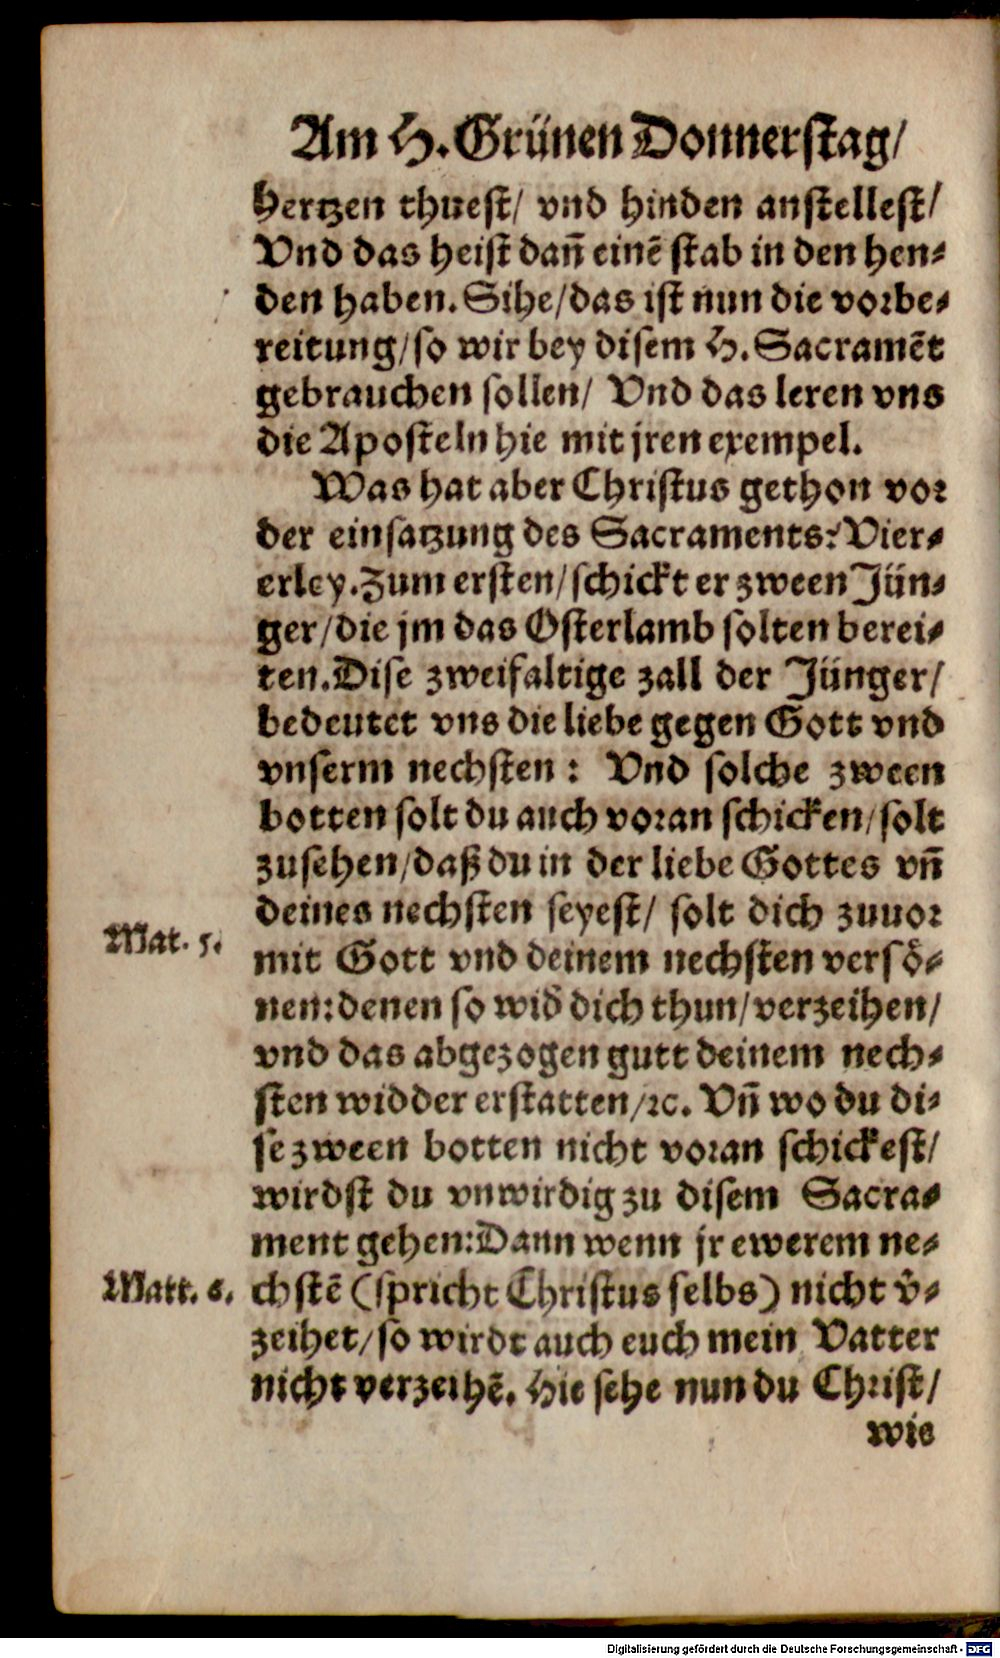 Am H. Grünen Donnerstag/
Hertzen thuest/ vnd hinden anstellest/
Vnd das heist dañ einē stab in den hen-
den haben. Sihe/das ist nun die vorbe-
reitung/so wir bey disem H. Sacramēt
gebrauchen sollen/ Vnd das leren vns
die Aposteln hie mit jren exempel.
Was hat aber Christus gethon vor
der einsatzung des Sacraments? Vier-
erley. Zum ersten/schickt er zween Jün-
ger/die jm das Osterlamb solten berei-
ten. Dise zweifaltige zall der Jünger/
bedeutet vns die liebe gegen Gott vnd
vnserm nechsten: Vnd solche zween
botten solt du auch voran schicken/solt
zusehen/daß du in der liebe Gottes vñ
deines nechsten seyest/ solt dich zuuor
Mat. 5.
mit Gott vnd deinem nechsten versö-
nen: denen so wid̄ dich thun/verzeihen/
vnd das abgezogen gutt deinem nech-
sten widder erstatten/ꝛc. Vñ wo du di-
se zween botten nicht voran schickest/
wirdst du vnwirdig zu disem Sacra-
ment gehen: Dann wenn jr ewerem ne-
Matt. 6.
chstē (spricht Christus selbs) nicht v̄-
zeihet/so wirdt auch euch mein Vatter
nicht verzeihē. Hie sehe nun du Christ/
wie
Digitalisierung gefördert durch die Deutsche Forschungsgemeinschaft - DFG